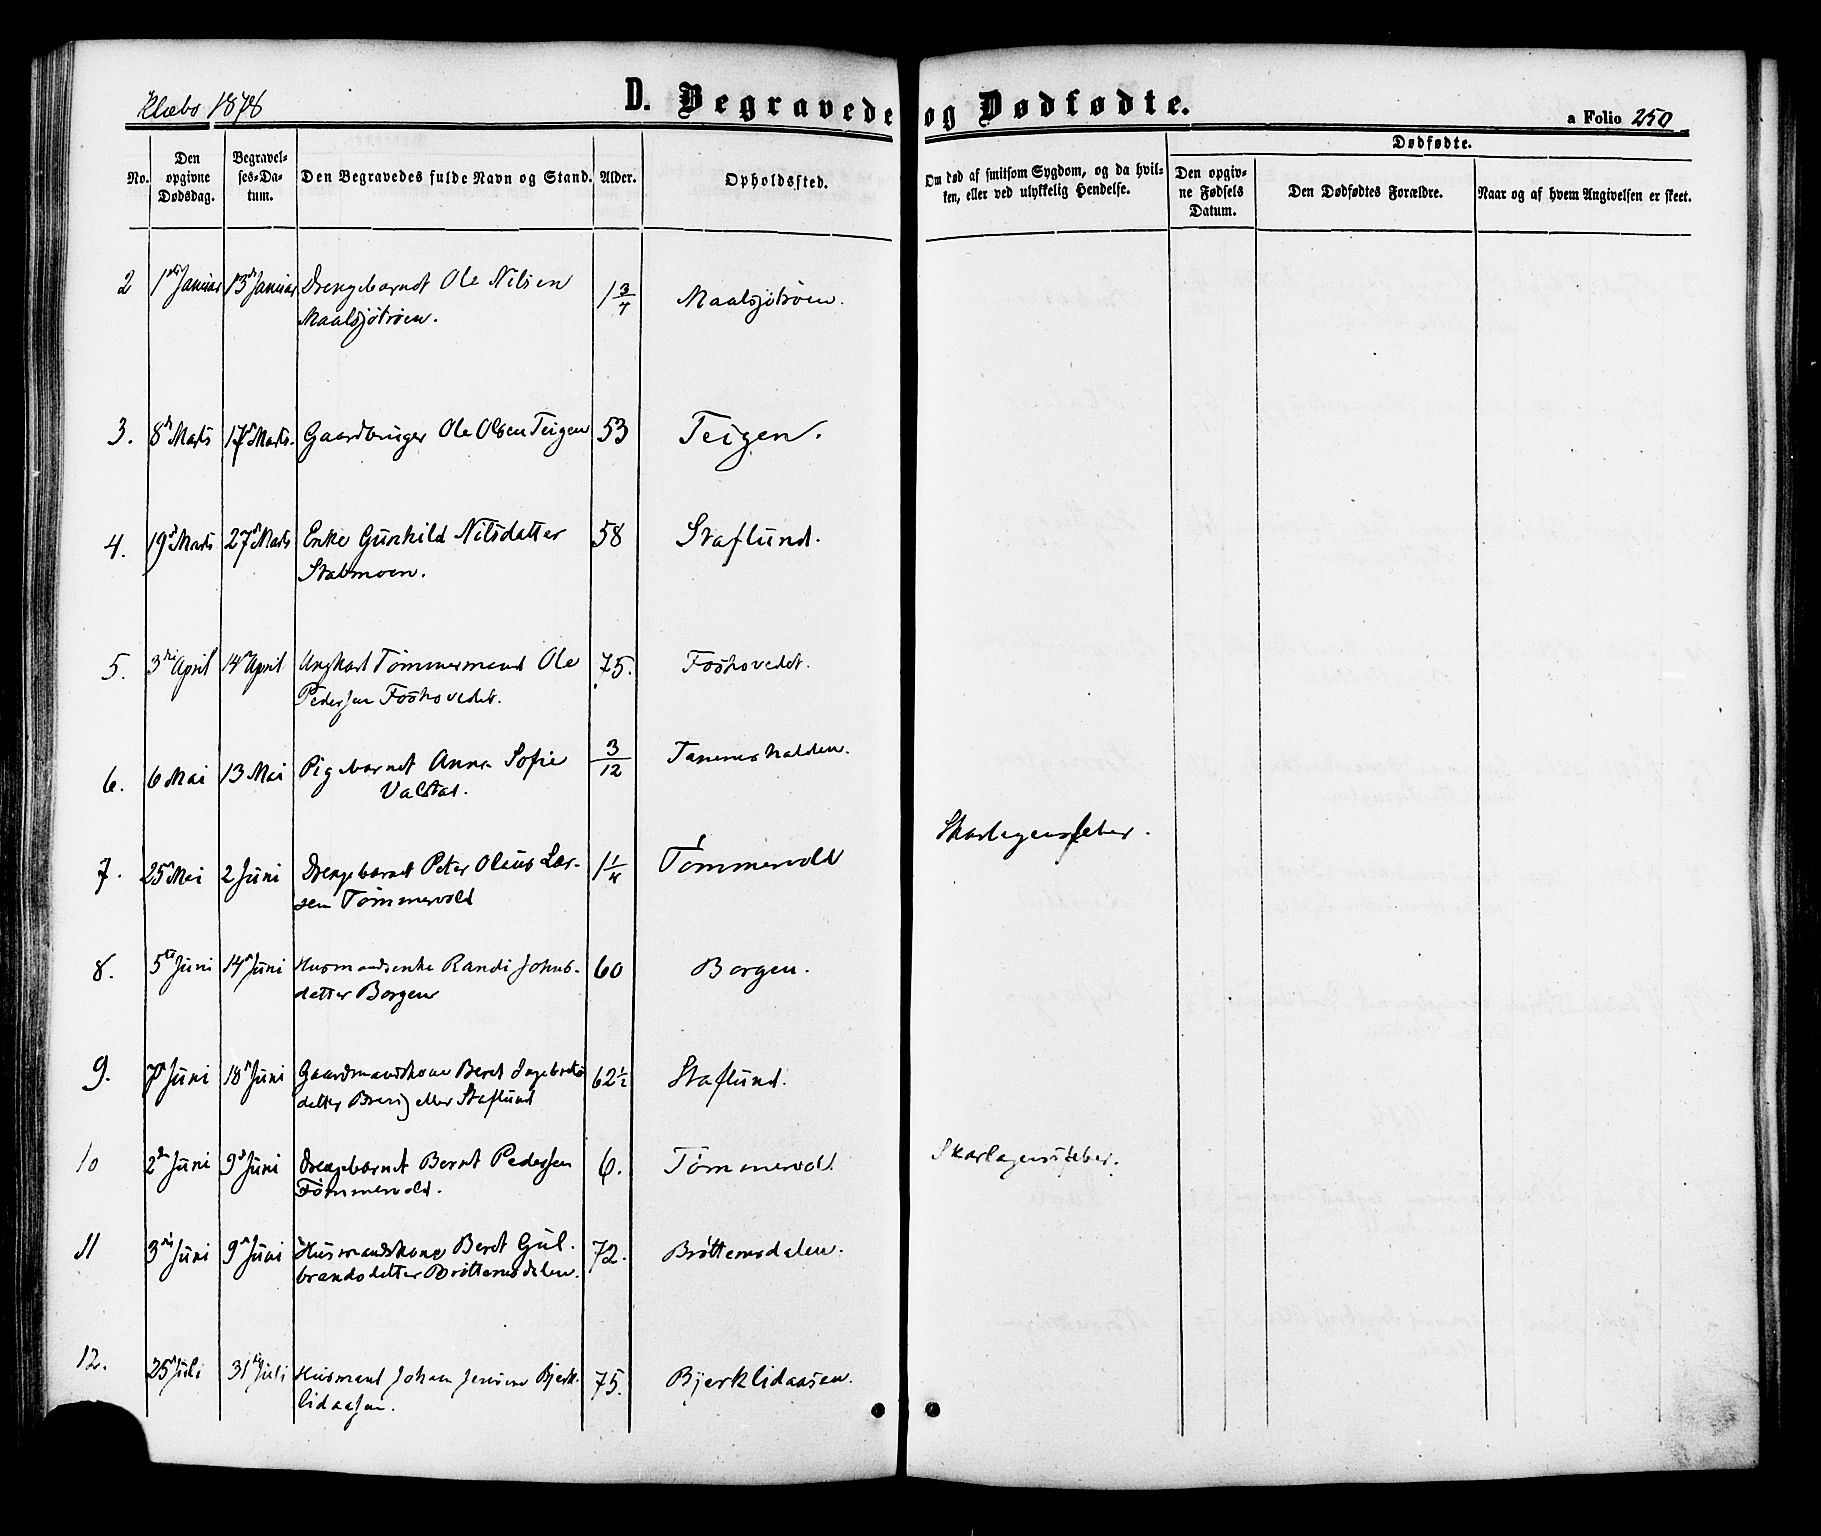 Klæbo 1878
D. Begravede og Dødfødte.
a Folio 250
No.
Den opgivne Dødsdag.
Begravelses-Datum.
Den Begravedes fulde Navn og Stand.
Alder.
Opholdssted.
Om død af smitsom Sygdom, og da hvilken, eller ved ulykkelig Hendelse.
Dødfødte.
Den opgivne Fødsels Datum.
Den Dødfødtes Forældre.
Naar og af hvem Angivelsen er skeet.
2 1 Januar 13 Januar Drengebarnet Ole Nilsen 1 3/4 Maalsjøtrøen.
Maalsjøtrøen.
3. 8 Marts 17 Marts. Gaardbruger Ole Olsen Teigen 53 Teigen.
4. 19 Marts 27 Marts Enke Gunhild Nilsdatter 58 Staflund.
Stabmoen.
5. 3die April 14 April Ungkarl Tømmermand Ole 75. Foshovedet.
Pedersen Foshovedet.
6. 6 Mai 13 Mai Pigebarnet Anna Sofie 3/12 Tanemshalden.
Valstad.
7. 25 Mai 2 Juni Drengebarnet Peter Oleus Lar- 1 1/4 Tømmervold Skarlagensfeber.
sen Tømmervold
8. 5te Juni 14 Juni Husmandsenke Randi Johns- 60 Borgen.
datter Borgen
9. 7 Juni 18 Juni Gaardmandskone Beret Ingebrikts 62 1/2 Staflund.
datter eller Staflund
10 2 Juni 9 Juni Drengebarnet Bernt Pedersen 6. Tømmervold. Skarlagensfeber.
Tømmervold.
11 3die Juni 9 Juni Husmandskone Beret Gul- 72. Brøttemsdalen.
brandsdatter Brøttemsdalen.
12. 25 Juli 31 Juli Husmand Johan Jensen Bjerk- 75. Bjerklidaasen.
lidaasen.